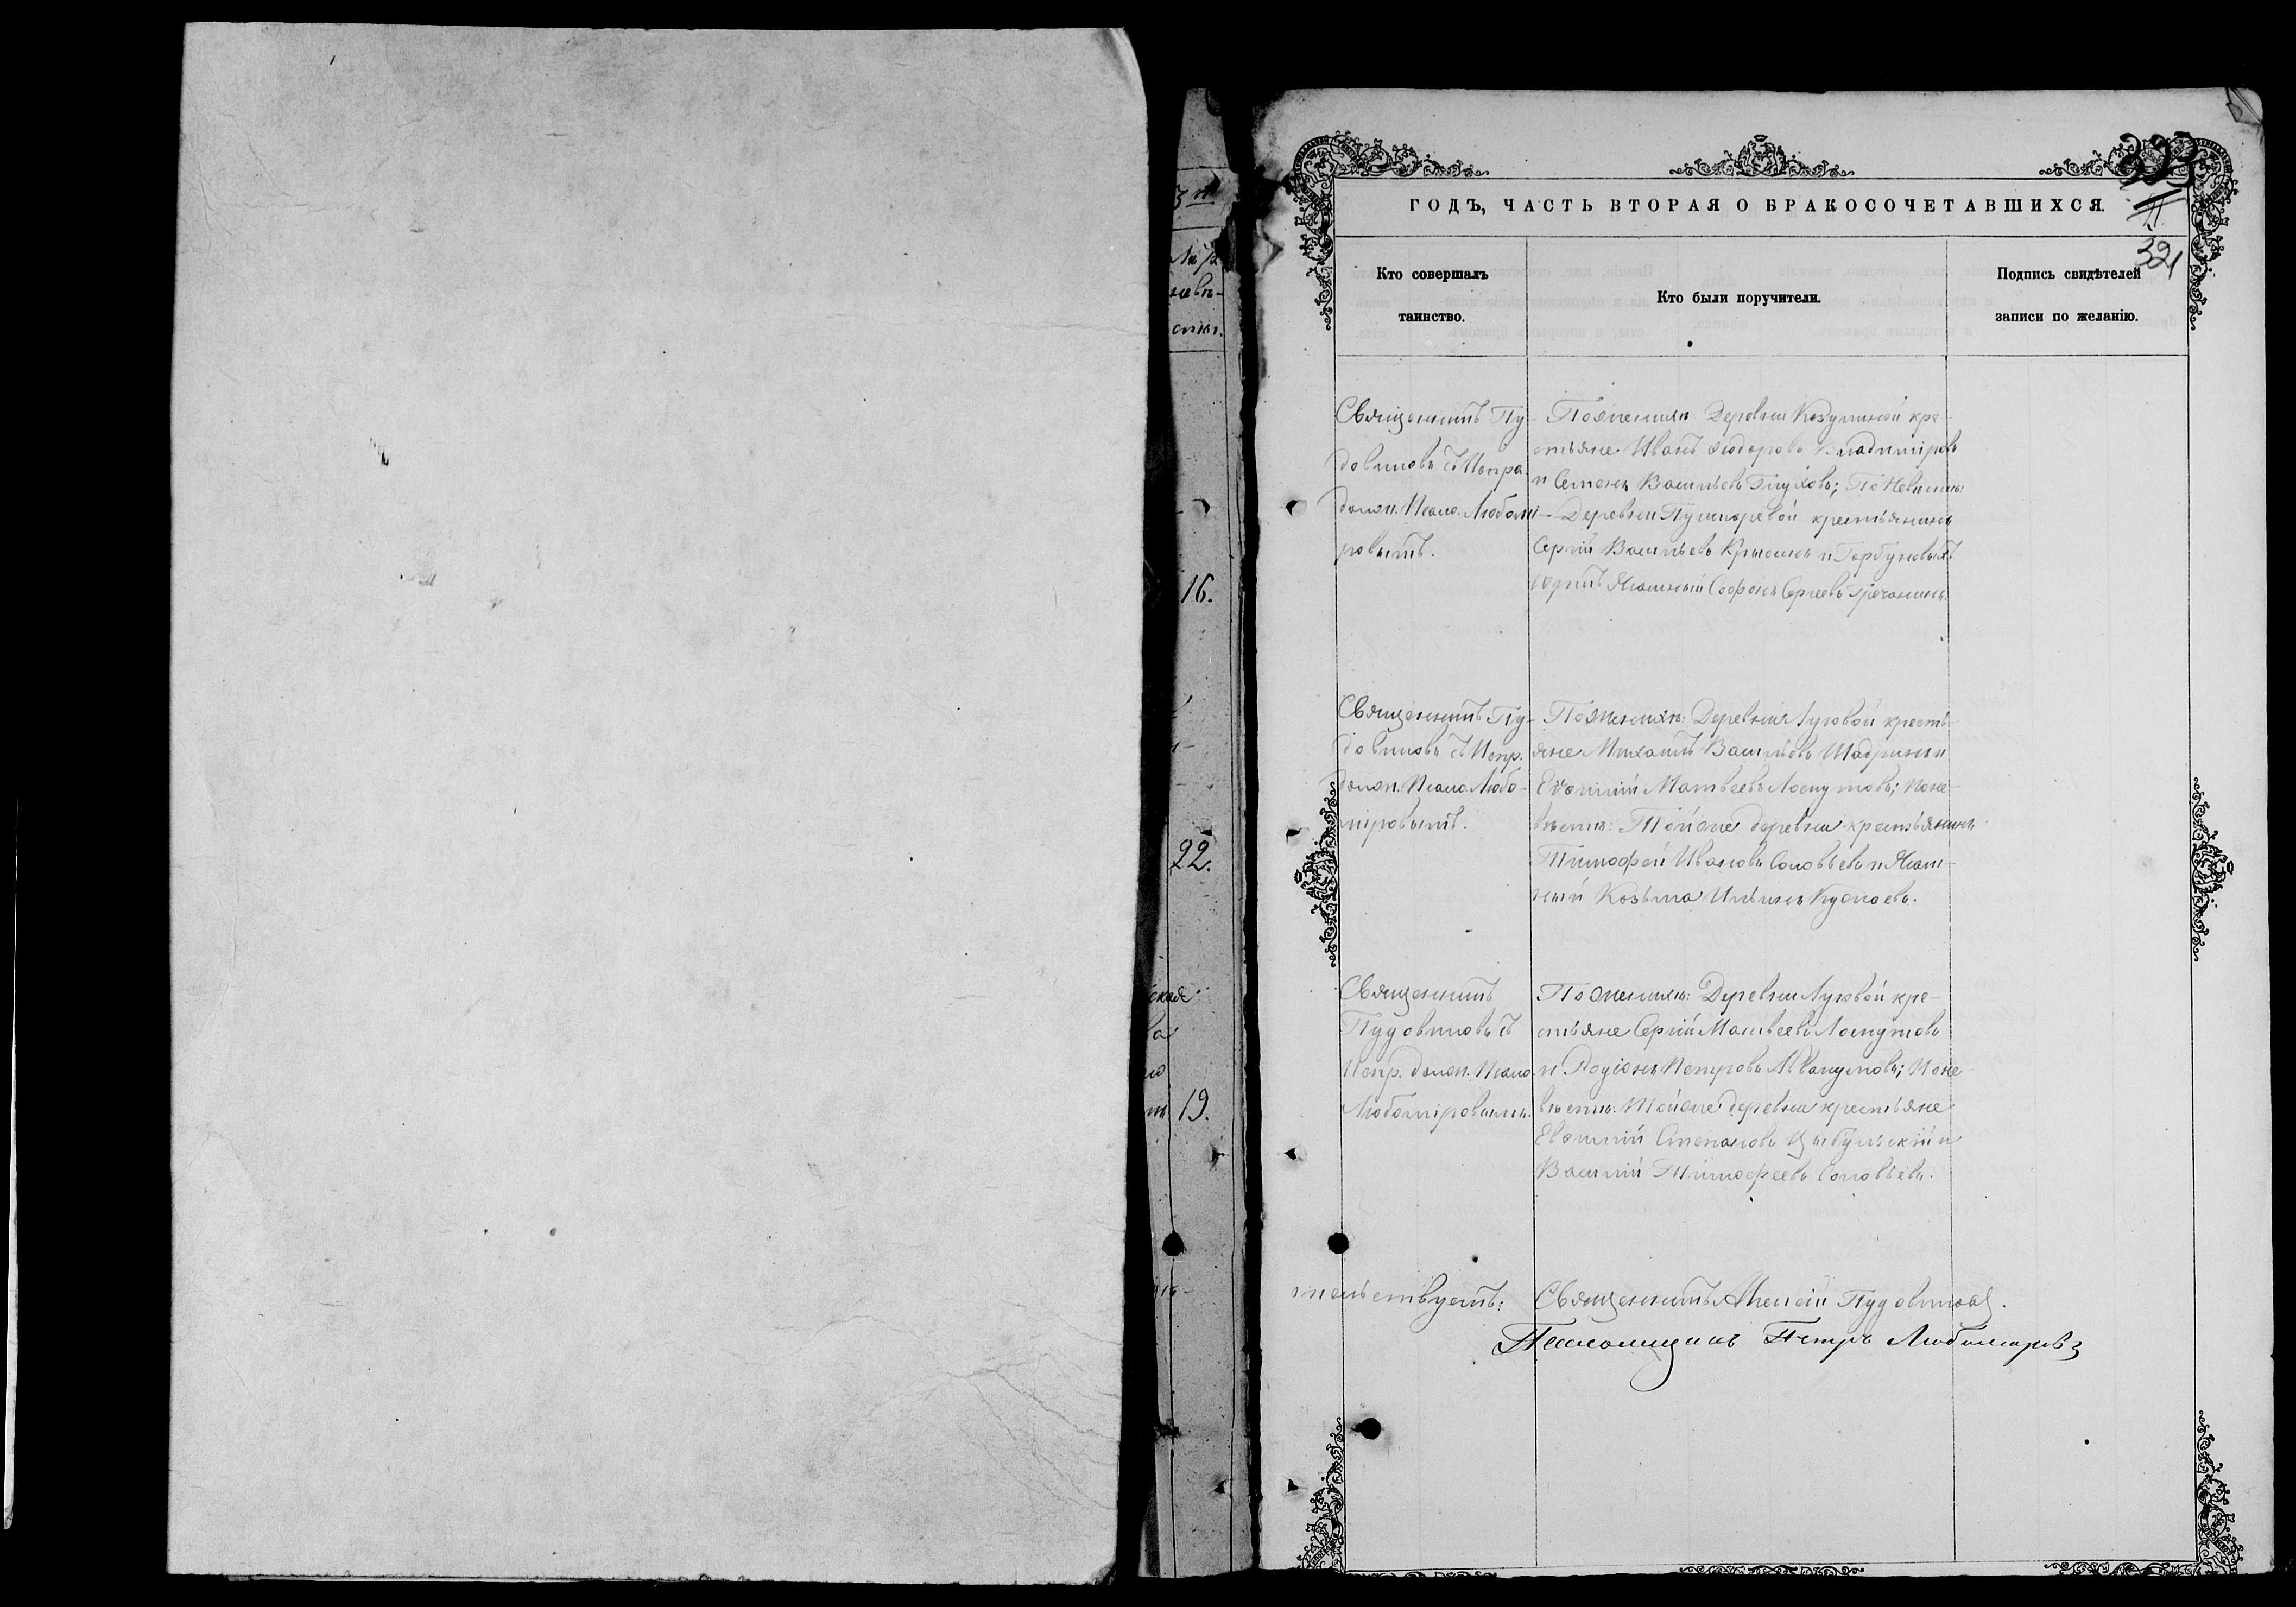 ГОДЪ, ЧАСТЬ ВТОРАЯ О БРАКОСОЧЕТАВШИХСЯ.
321
Кто совершалъ
таинство.
Кто были поручители.
Подпись свидѣтелей
записи по желанію.
Священникъ Пу-
довиковъ съ Испра.
долж. Псало. Любоми-
ровымъ.
По женихѣ: Деревни Казуниной кре-
стьяне Иванъ Ѳедоровъ Владиміровъ
и Семенъ Васильевъ Глуховъ; По Невѣстѣ:
Деревни Пушкаревой крестьянинъ
Сергій Васильевъ Крысинъ и Горбуновыхъ
Юртъ Ясашный Софонъ Сергеевъ
16.
Священникъ Пу-
довиковъ съ Испр.
долж. Псало. Любо-
міровымъ.
По женихѣ: Деревни Луговой кресть-
яне Михаилъ Васильевъ Шадринъ и
Евсигній Матвѣевъ Лоскутовъ; По не-
вѣстѣ: Тойже деревни крестьянинъ
Тимофей Ивановъ Соловьевъ и Ясаш-
ный Козьма Ильинъ
22.
Священникъ
Пудовиковъ съ
Испр. долж. Псало.
Любоміровымъ.
По женихѣ: Деревни Луговой кре-
стьяне Сергій Матвеевъ Лоскутовъ
и Родіонъ Петровъ Аввакумовъ; По не-
вѣстѣ: Тойже деревни крестьяне
Степановъ Цыбульскій и
Василій Тимофеевъ Соловьевъ.
19.
тельствуетъ: Священникъ Алексій Пудовиковъ.
Псаломщикъ Петръ Любомировъ